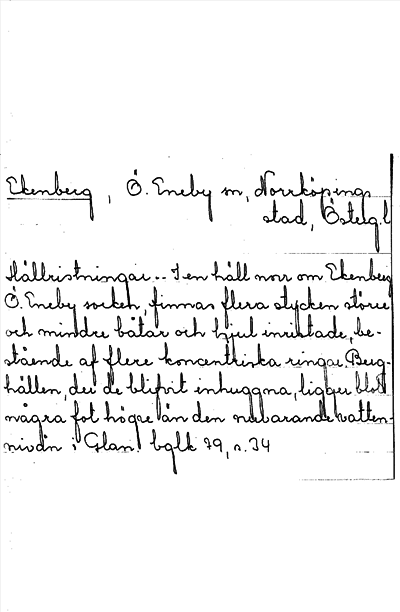 Ekenberg, Ö. Eneby sn, Norrköpings
stad, Östergl
Hällristningar.. I en häll norr om Ekenberg
Ö. Eneby socken, finnas flera stycken större
och mindre båtar och hjul inristade, be-
stående af flere koncentriska ringar. Berg-
hällen, der de blifvit inhuggna, ligger blott
några fot högre än den nuvarande vatten-
nivån i Glan. bglk 79, s. 34